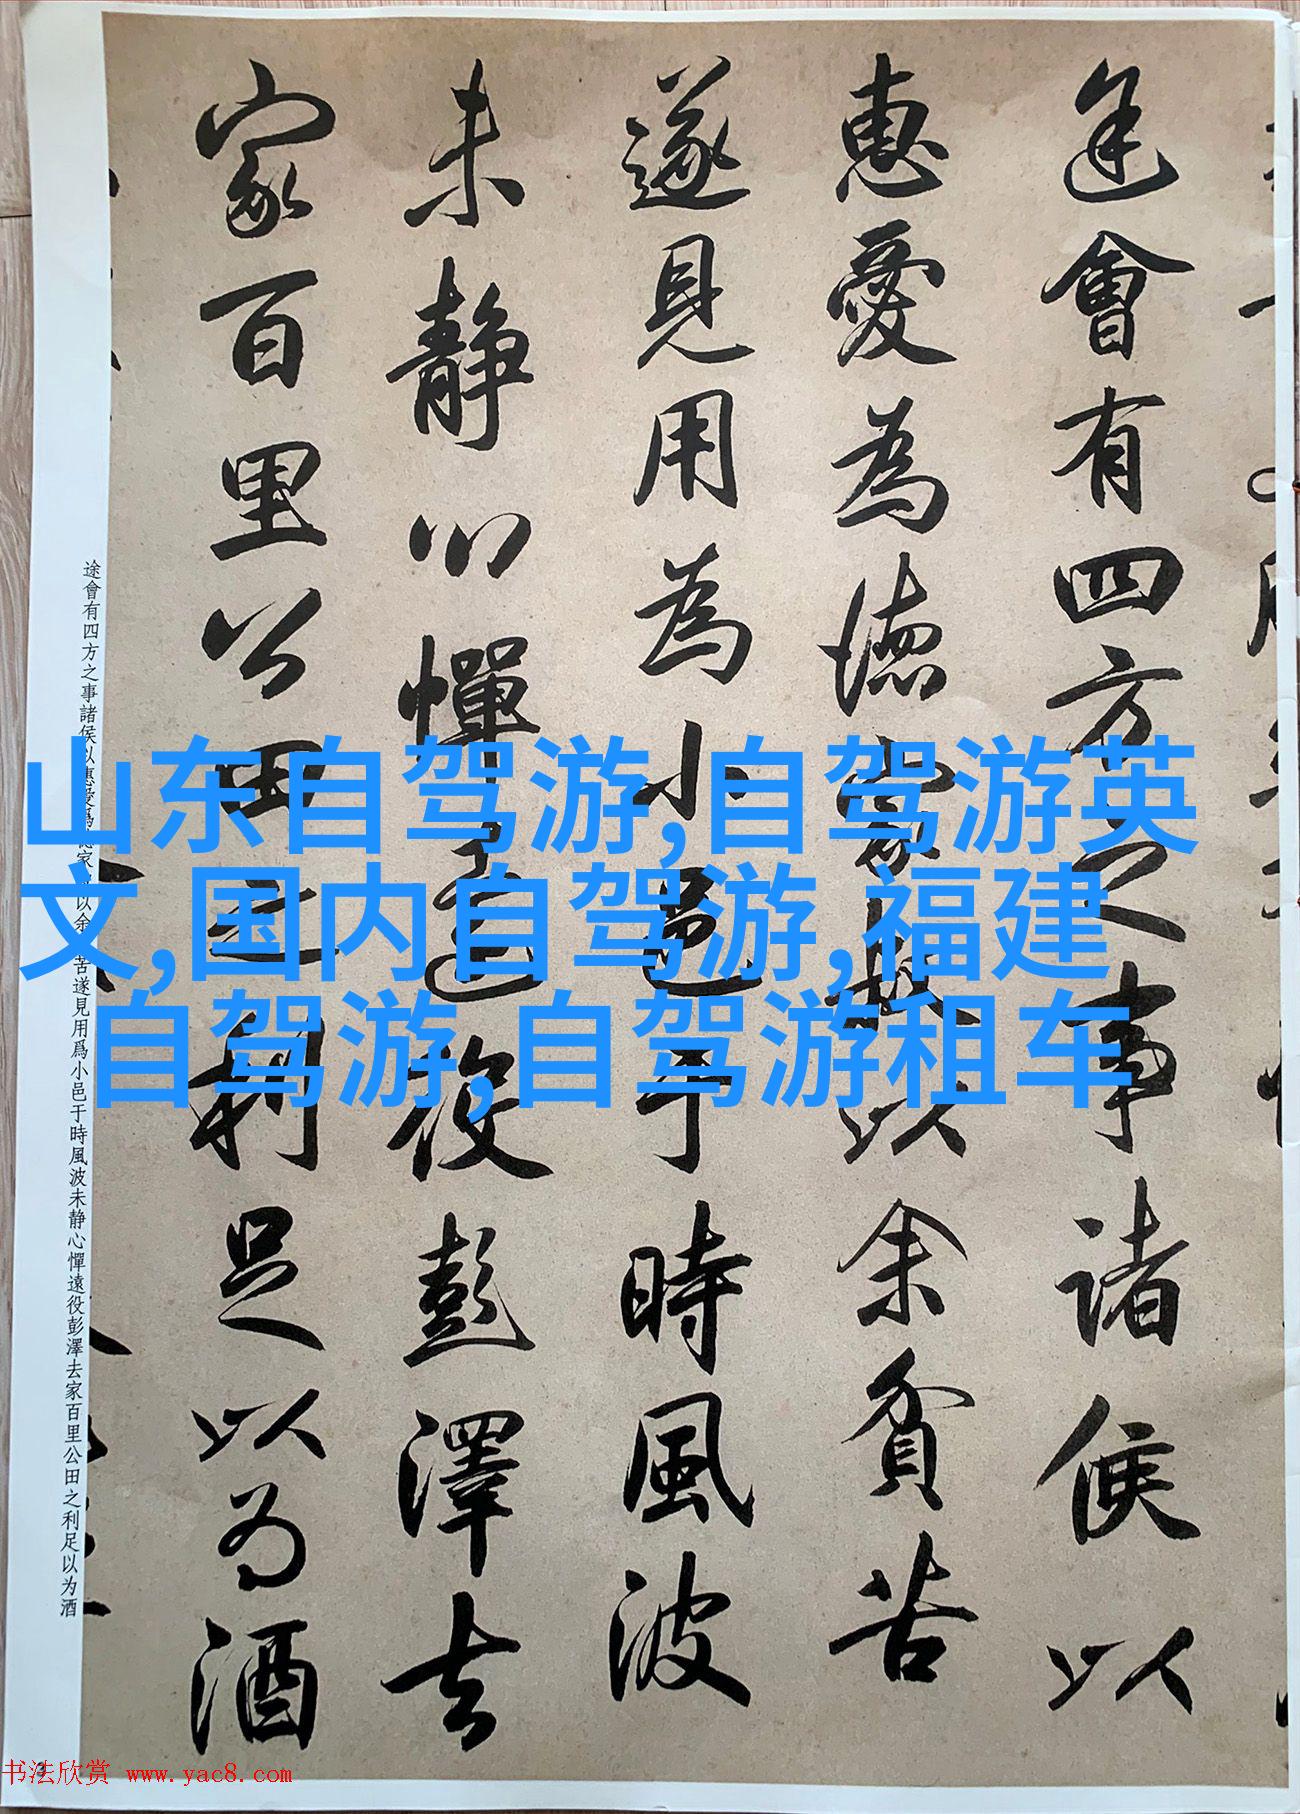 途會有四方之事諸侯以
惠愛為德家叔以余貧苦
遂見用為小邑于時風波
未靜心憚遠役彭澤去
家百里公田之利足以为酒
途會有四方之事諸侯以惠愛爲德家以余苦遂見用爲小邑于時風波未静心憚遠役彭澤去家百里公田之利足以为酒
山东自驾游,自驾游英
文,国内自驾游,福建
自驾游,自驾游租车
书法欣赏 www.yac8.com